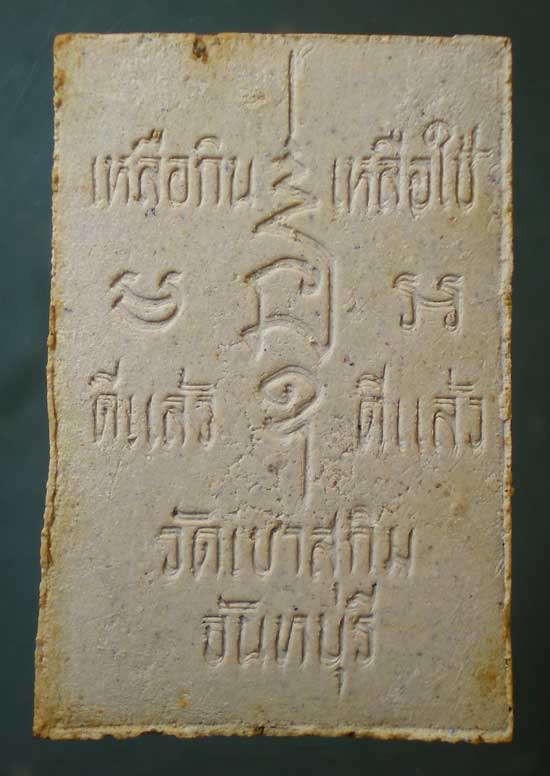 เหลือกิน เหลือใช้
ดีแล้ว ดีแล้ว
วัดเขาสุกิม
จันทบุรี